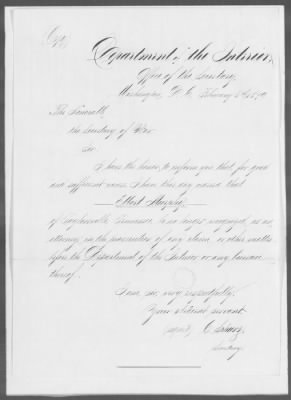 Copy
Department of the Interior,
Office of the Secretary,
Washington, D. C. February
The Honorable
the Secretary of War.
Sir:
I have the honor to inform you that for good
and sufficient cause I have this day that
Murphy
of Tennessee is no longer recognized, as an
attorney, in the prosecution of any claim, or other matter
before the Department of the Interior or any bureau
thereof.
I am, sir, very respectfully,
Your obedient servant
(signed) C. Schurz,
Secretary.